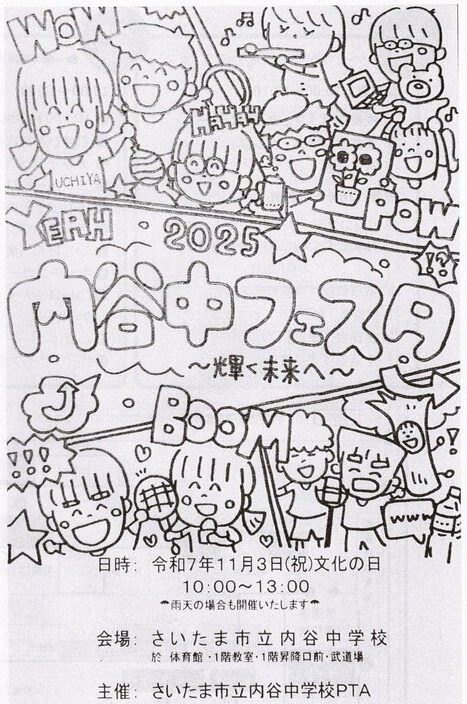 WOW
HAHAH
UCHIYA
POW
YEAH
2025
!?
内谷中フェスタ
～輝く未来へ～
BOOM
!!!
www
日時: 令和7年11月3日(祝)文化の日
10:00～13:00
☂雨天の場合も開催いたします☂
会場: さいたま市立内谷中学校
於 体育館・1階教室・1階昇降口前・武道場
主催: さいたま市立内谷中学校PTA